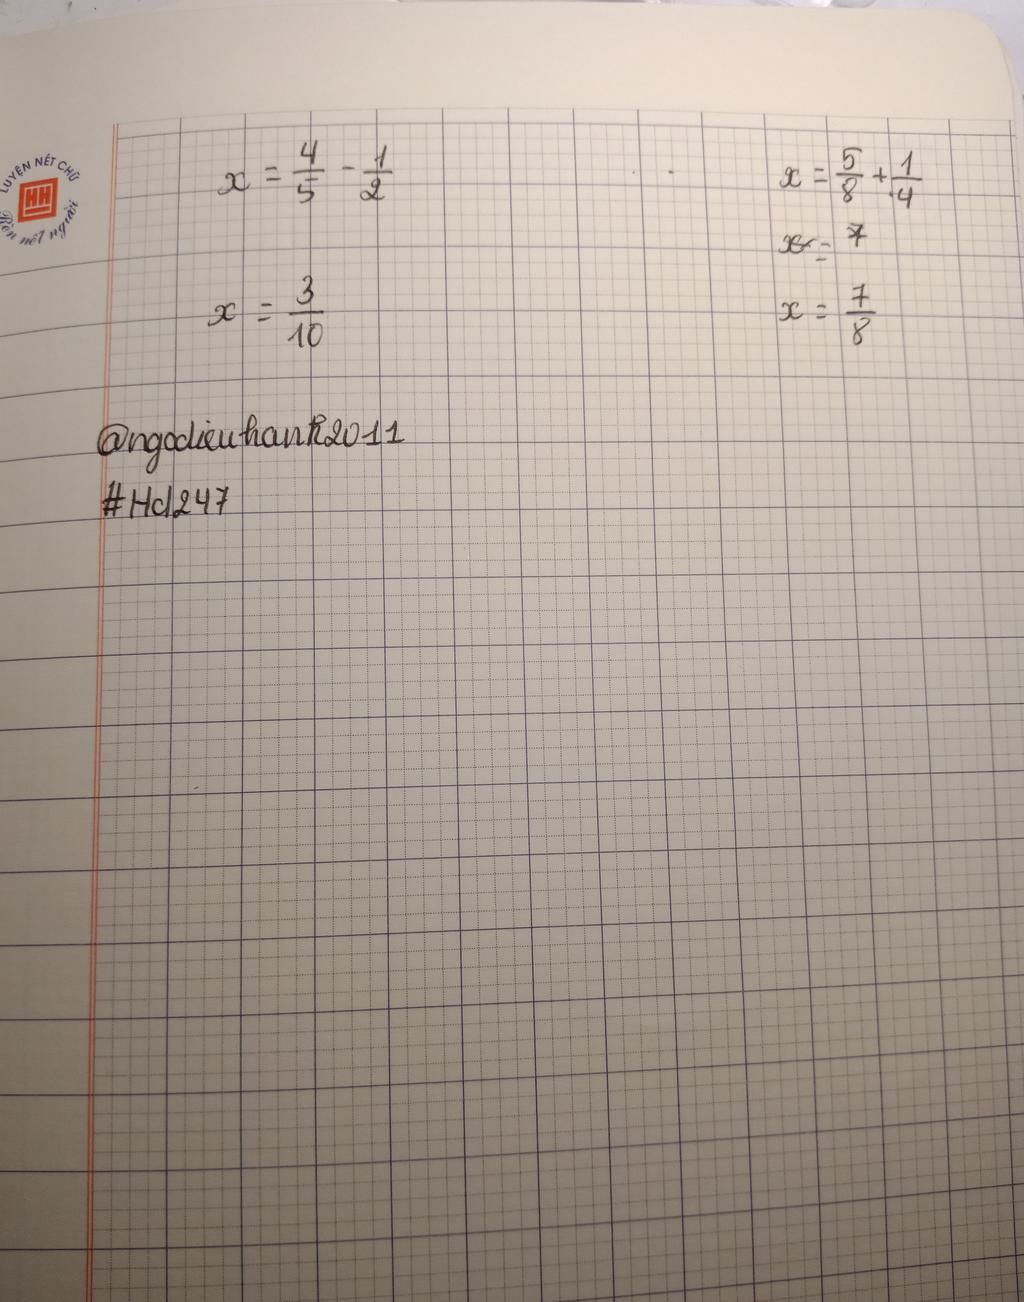 LUYỆN NÉT CHỮ
HH
Rèn nết người
x = 4/5 - 1/2
x = 3/10
x = 5/8 + 1/4
x = 7
x = 7/8
@ngodieuhanh2011
#Hd247